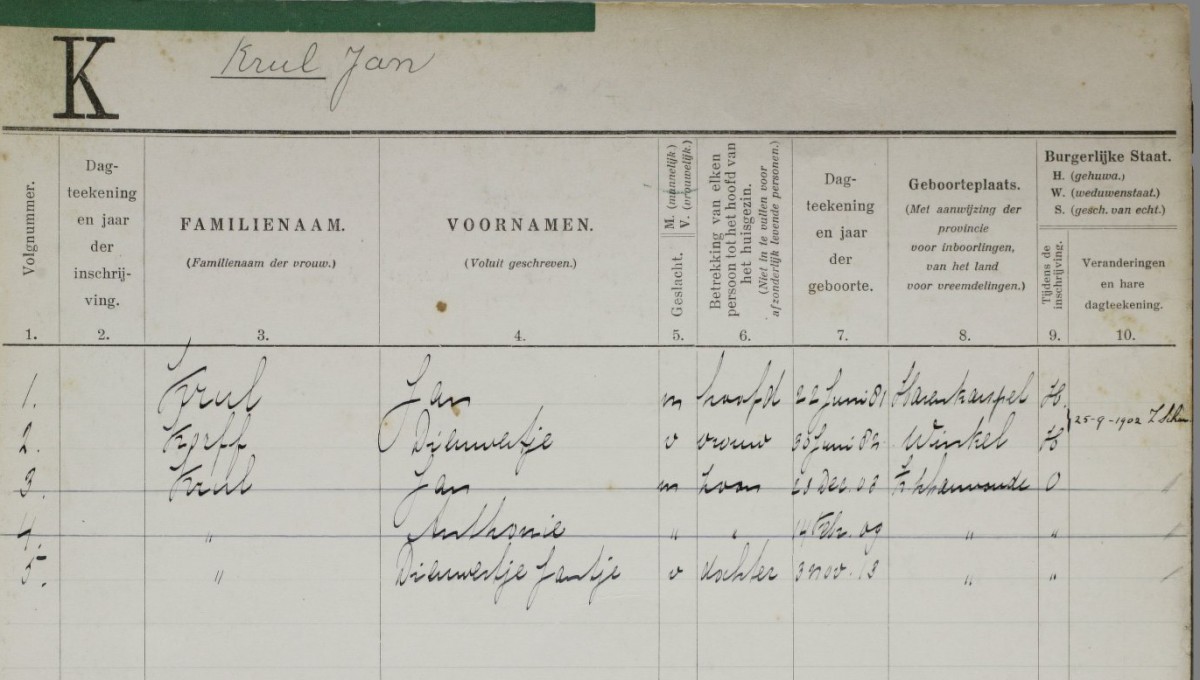 K Krul Jan
Volgnummer.
1.
Dag-
teekening
en jaar
der
inschrij-
ving.
2.
FAMILIENAAM.
(Familienaam der vrouw.)
3.
VOORNAMEN.
(Voluit geschreven.)
4.
Geslacht. M. (mannelijk.)
V. (vrouwelijk.)
5.
Betrekking van elken
persoon tot het hoofd van
het huisgezin.
(Niet in te vullen voor
afzonderlijk levende personen.)
6.
Dag-
teekening
en jaar
der
geboorte.
7.
Geboorteplaats.
(Met aanwijzing der
provincie
voor inboorlingen,
van het land
voor vreemdelingen.)
8.
Burgerlijke Staat.
H. (gehuwd.)
W. (weduwenstaat.)
S. (gesch. van echt.)
Tijdens de
inschrijving.
9.
Veranderingen
en hare
dagteekening.
10.
1. Krul Jan m hoofd 22 Juni 81 Harenkarspel H.
25-9-1902
2. Korff Dieuwertje v vrouw 30 Juni 82 Winkel H
3. Krul Jan m zoon Dec. 0
4. " Anthonie " " 14 Febr. 09 " "
5. " Dieuwertje Jantje v dochter 3 Nov. 13 " "